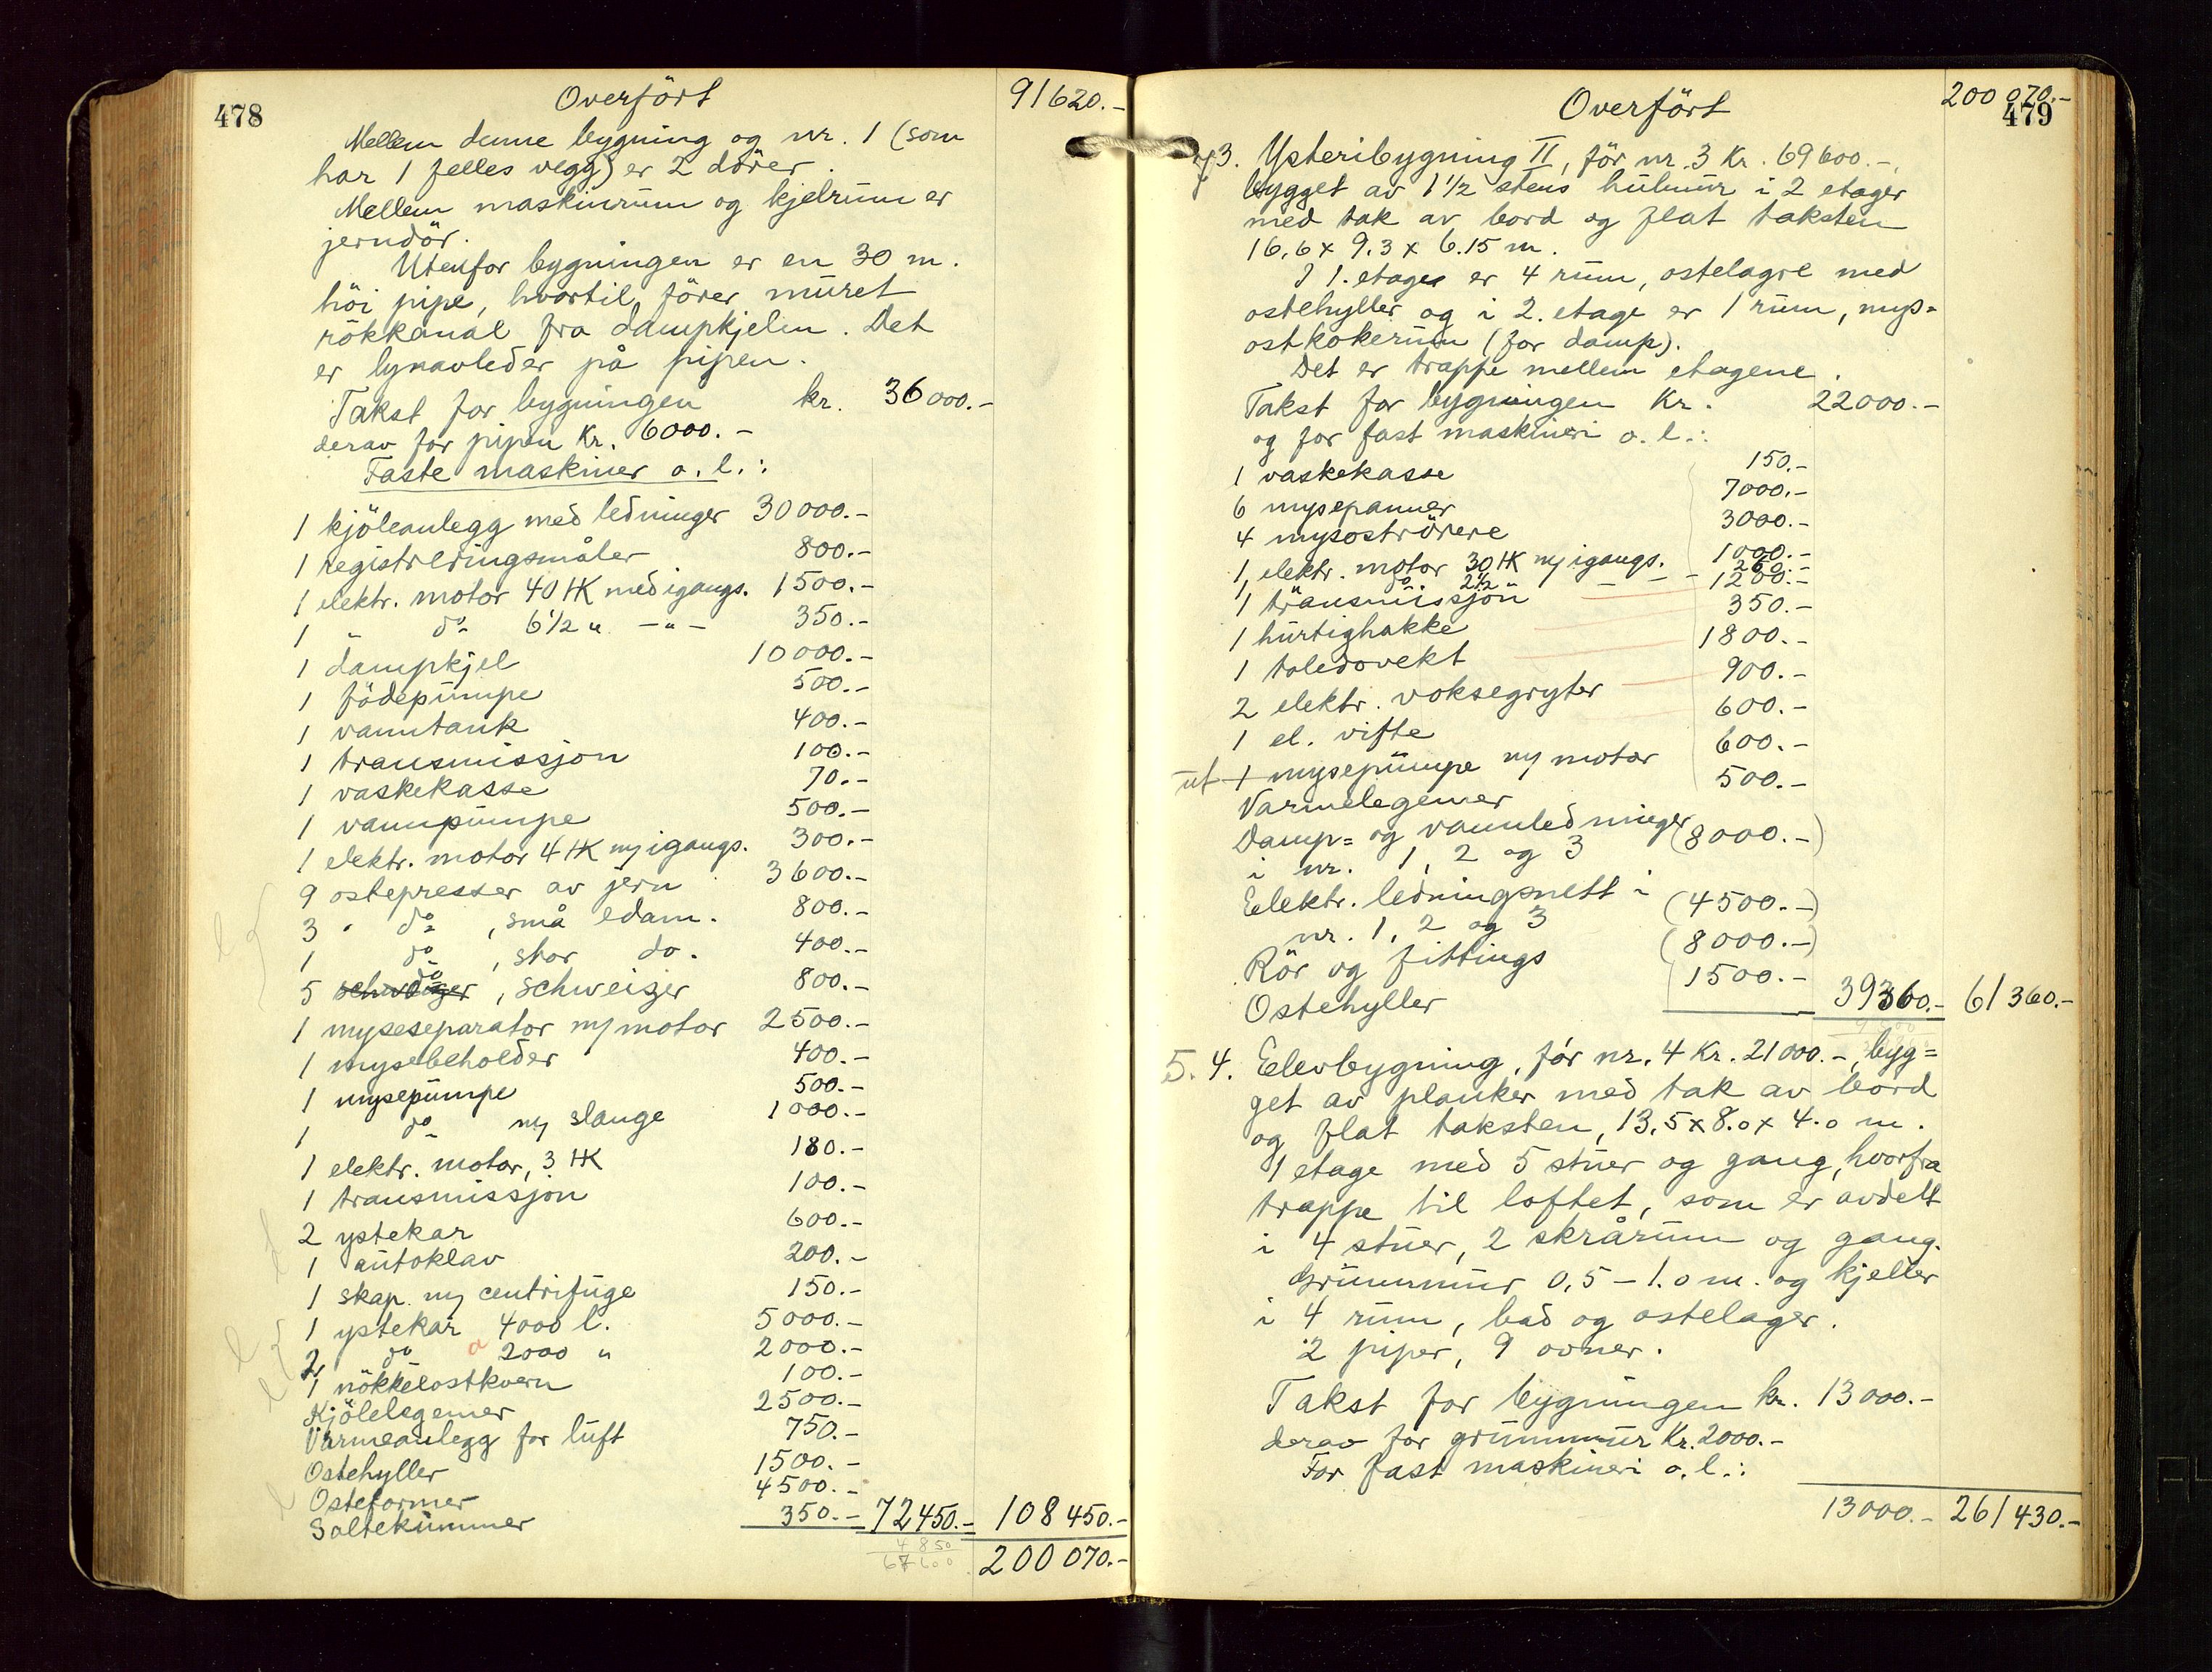 478
Overført 91620.-
Mellem denne bygning og nr. 1 (som
har 1 felles vegg) er 2 dører.
Mellem maskinrum og kjelrum er
jerndør.
Utenfor bygningen er en 30 m.
höi pipe, hvortil förer muret
rökkanal fra dampkjelen. Det
er lynavleder på pipen.
Takst for bygningen kr. 36000.-
derav for pipen Kr. 6000.-
Faste maskiner o.l.:
1 kjöleanlegg med ledninger 30000.-
1 registreringsmåler 800.-
1 elektr. motor 40 HK med igangs. 1500.-
1 " do 6 1/2 " -"- 350.-
1 dampkjel 10000.-
1 födepumpe 500.-
1 vanntank 400.-
1 transmissjon 100.-
1 vaskekasse 70.-
1 vannpumpe 500.-
1 elektr. motor 4 HK m/igangs. 300.-
9 ostepresser av jern 3600.-
3 " do , små edam. 800.-
1 do , stor do. 400.-
5 do , schweizer 800.-
1 myseseparator m/motor 2500.-
1 mysebeholder 400.-
1 mysepumpe 500.-
1 do m/ slange 1000.-
1 elektr. motor, 3 HK 180.-
1 transmissjon 100.-
2 ystekar 600.-
1 autoklav 200.-
1 skap m/ centrifuge 150.-
1 ystekar 4000 l. 5000.-
2 do a 2000 " 2000.-
1 nökkelostkvern 100.-
Kjölelegemer 2500.-
Varmeanlegg for luft 750.-
Ostehyller 1500.-
Osteformer 4500.-
Saltekummer 350.- 72450.- 108450.-
4850
67600
200070.-
479
Overført 200070.-
3. Ysteribygning II, för nr. 3 Kr. 69600.-,
bygget av 1 1/2 stens hulmur i 2 etager
med tak av bord og flat taksten
16.6 x 9.3 x 6.15 m.
I 1. etage er 4 rum, ostelagre med
ostehyller og i 2. etage er 1 rum, mys=
ostkokerum (for damp).
Det er trappe mellem etagene.
Takst for bygningen Kr. 22000.-
og for fast maskineri o.l.:
1 vaskekasse 150.-
6 mysepanner 7000.-
4 mysoströrere 3000.-
1 elektr. motor 30 HK m/igangs. 1000.-
1 do 2 1/2 - - - 260.-
1 transmissjon 1200.-
1 hurtighakke 350.-
1 toledovekt 1800.-
2 elektr. voksegryter 900.-
1 el. vifte 600.-
ut 1 mysepumpe m/ motor 600.-
Varmelegemer 500.-
Damp= og vannledninger
i nr. 1, 2 og 3 (8000.-)
Elektr. ledningsnett i
nr. 1, 2 og 3 (4500.-)
Rör og fittings (8000.-)
Ostehyller 1500.- 39360.- 61360.-
5. 4. Elevbygning, för nr. 4 Kr. 21000.-, byg=
get av planker med tak av bord
og flat taksten, 13.5 x 8.0 x 4.0 m.
1 etage med 5 stuer og gang, hvorfra
trappe til loftet, som er avdelt
i 4 stuer, 2 skrårum og gang.
Grunnmur 0,5 - 1.0 m. og kjeller
i 4 rum, bad og ostelager.
2 piper, 9 ovner.
Takst for bygningen kr. 13000.-
derav for grunnmur Kr. 2000.-
For fast maskineri o.l.:
13000.- 261430.-